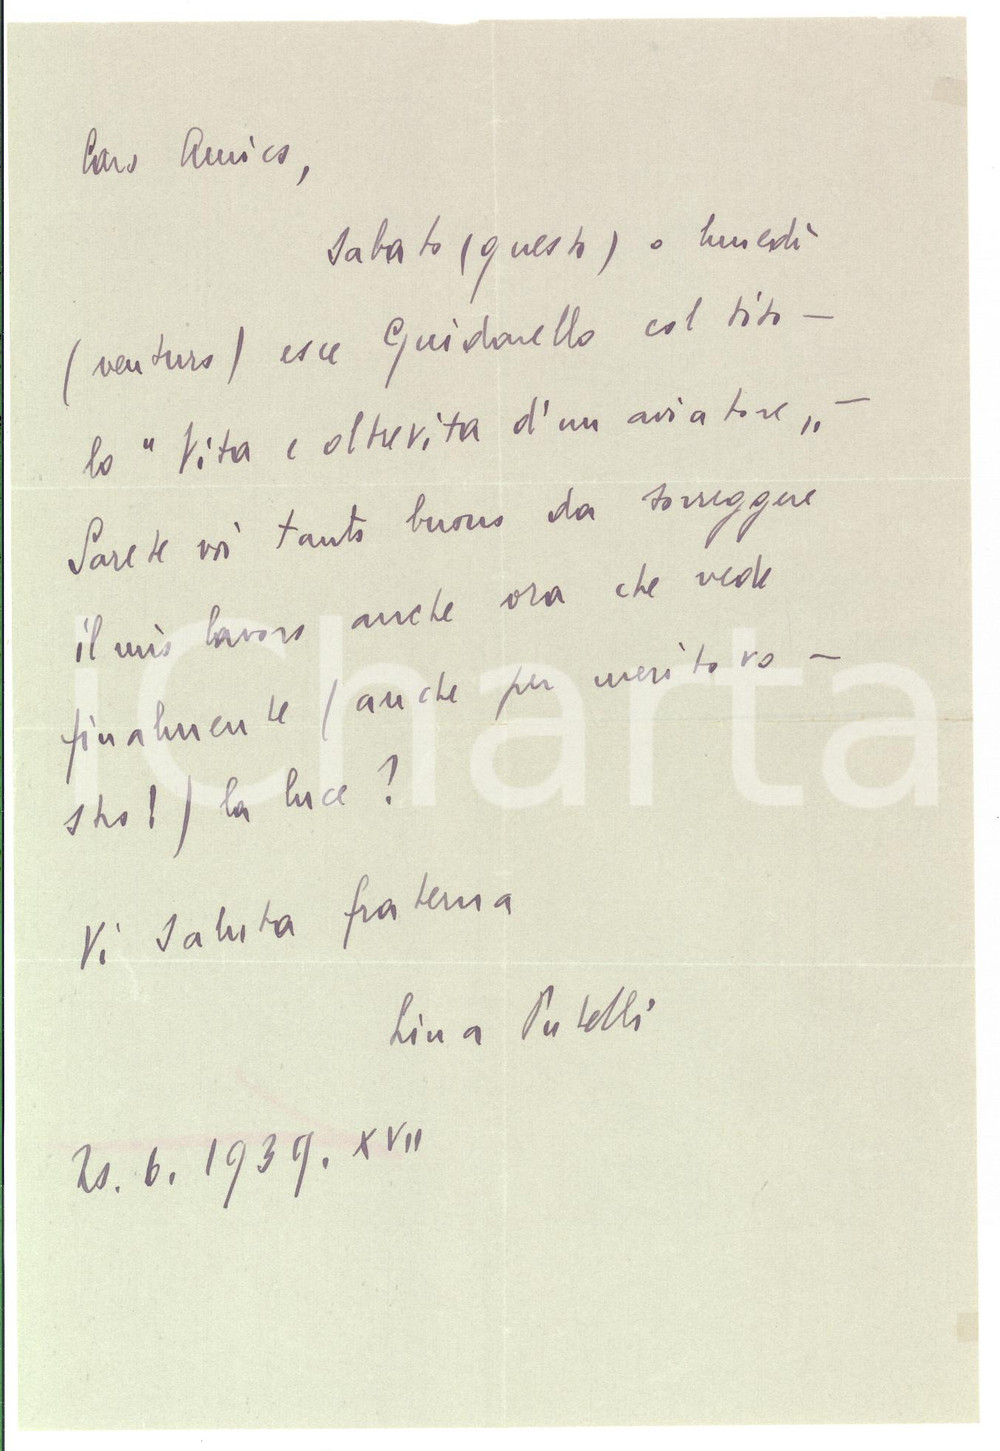 Caro Amico,
sabato (questo) o lunedì
(venturo) esce Guidarello col tito-
lo "Vita e oltrevita d'un aviatore„ -
Sarete voi tanto buono da sorreggere
il mio lavoro anche ora che vede
finalmente (anche per merito vo-
stro!) la luce?
Vi saluta fraterna
Lina Putelli
6. 1939. XVII
iCharta